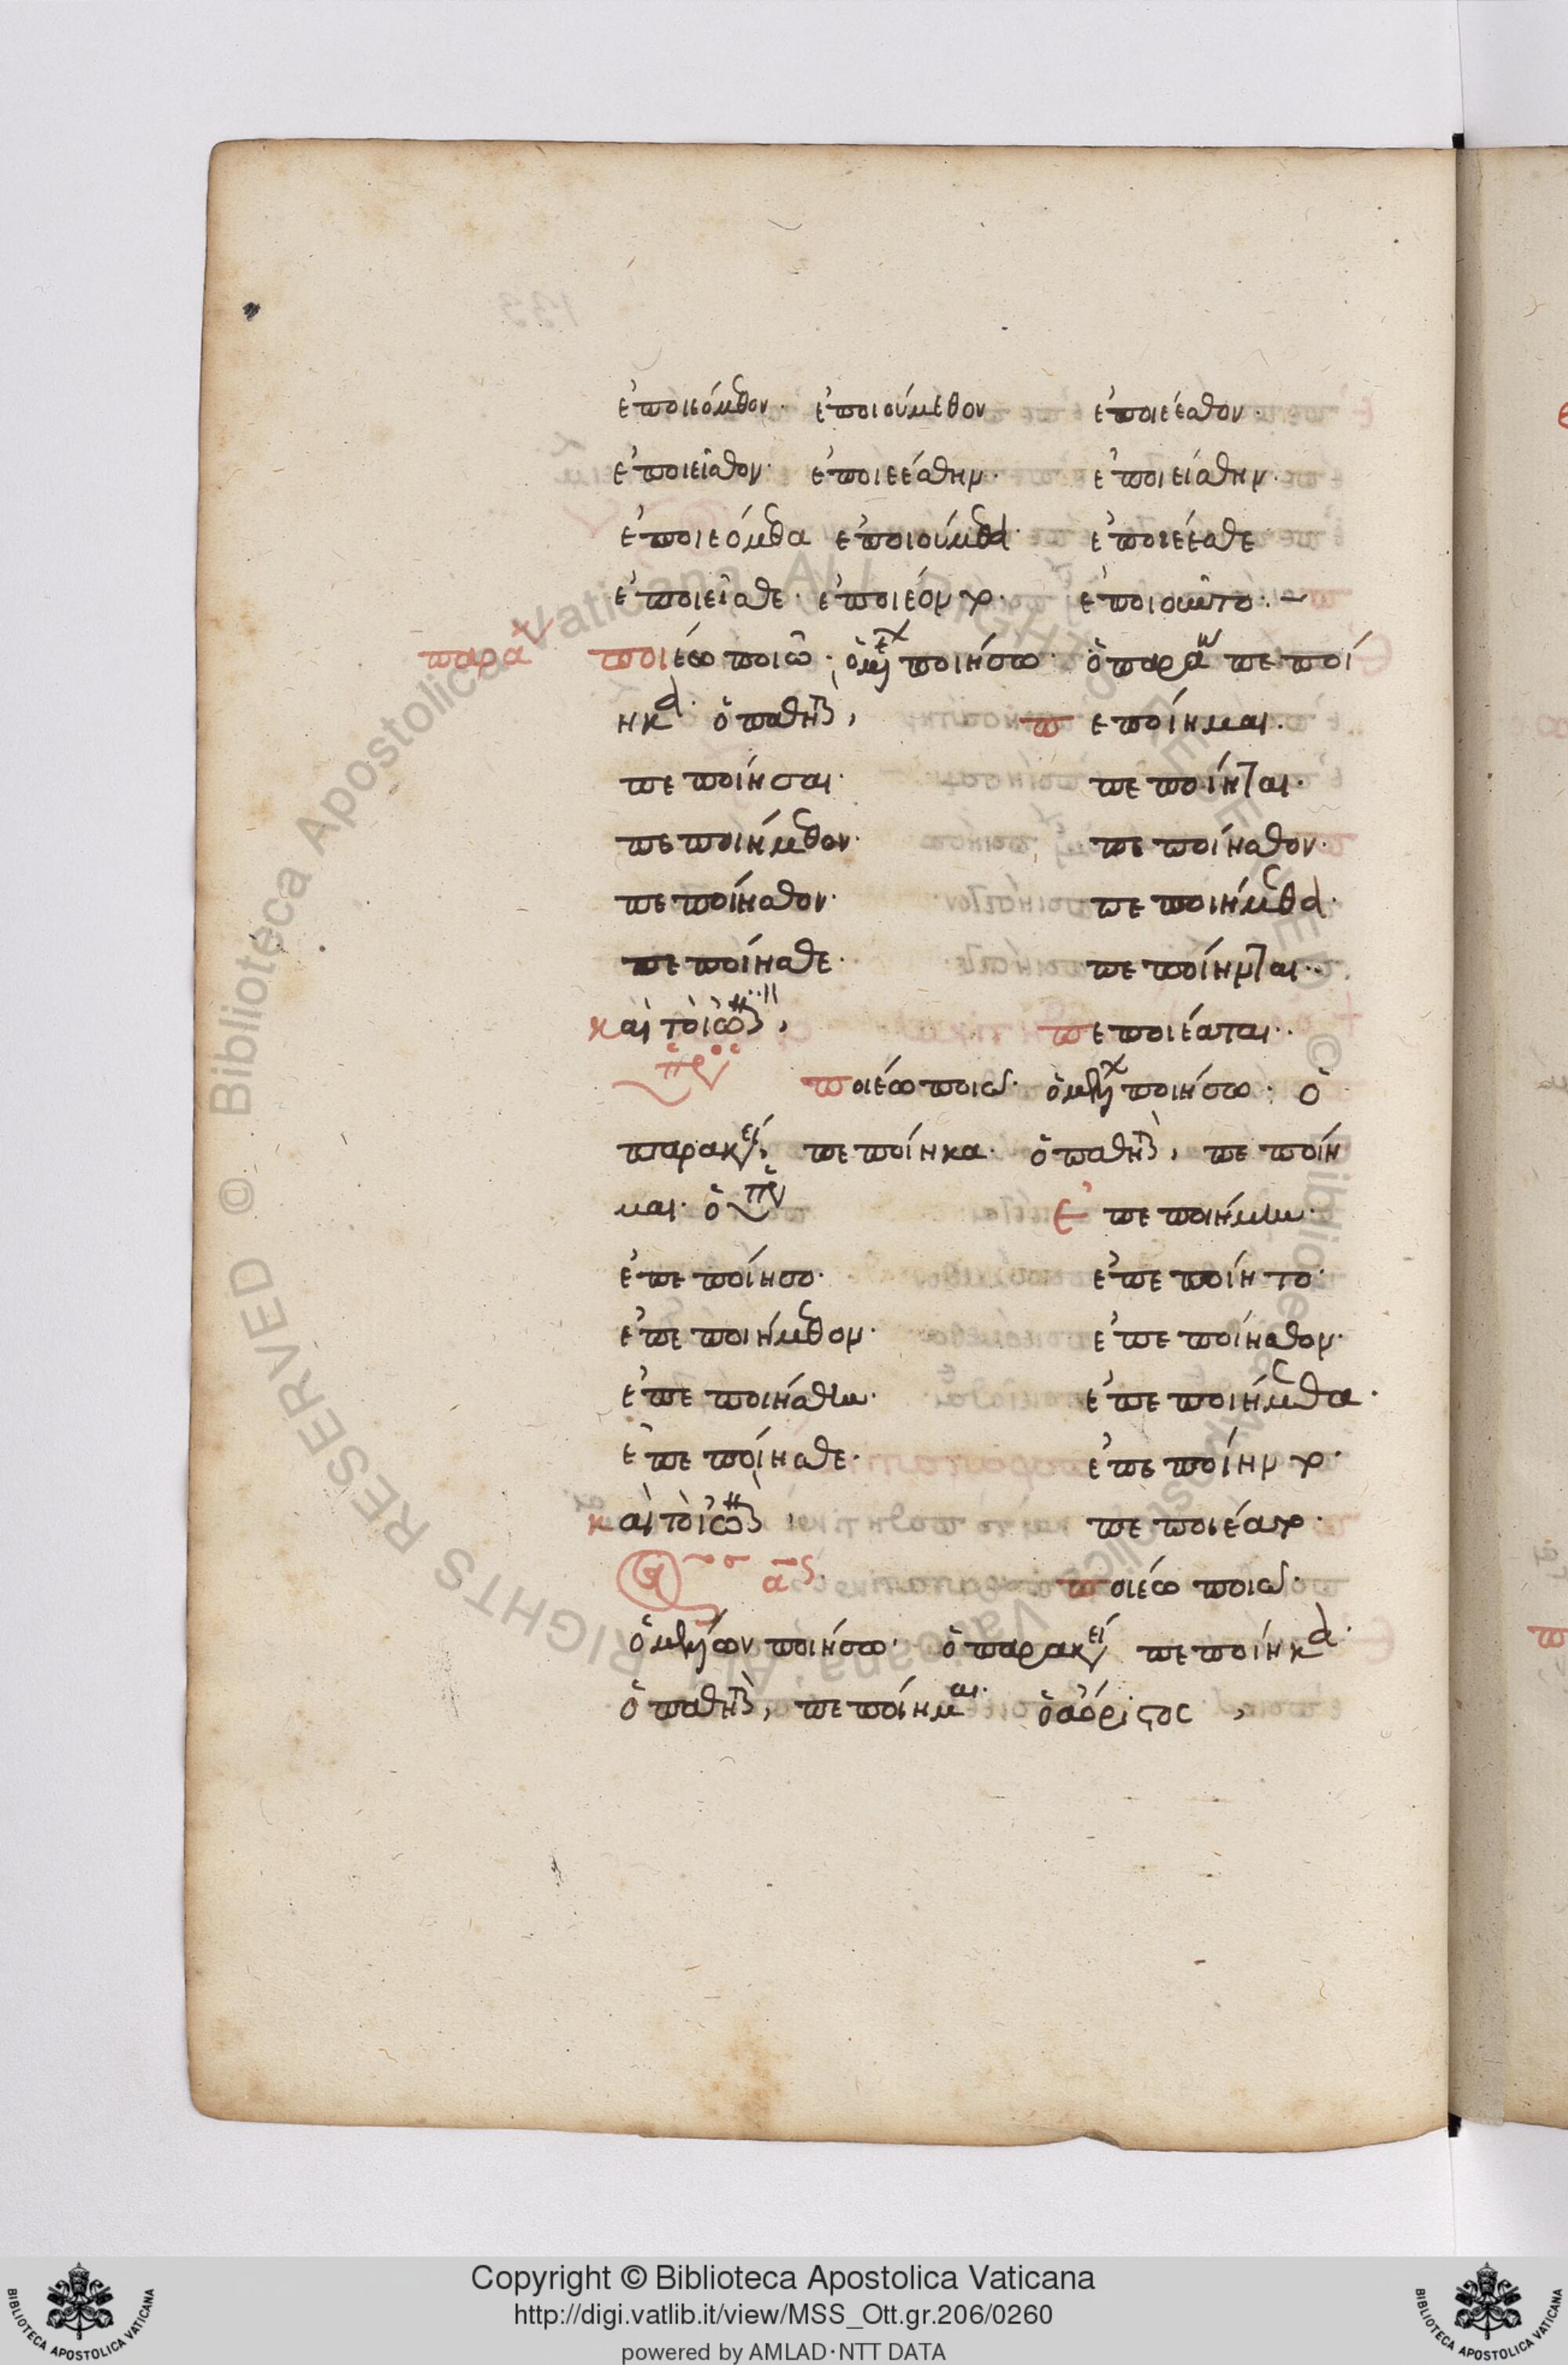 ἐποιεόμεθον· ἐποιούμεθον ἐποιέεσθον·
ἐποιεῖσθον· ἐποιεέσθην· ἐποιείσθην·
ἐποιεόμεθα ἐποιούμεθα· ἐποιέεσθε
ἐποιεῖσθε· ἐποιέοντο· ἐποιοῦντο·
παρα
ποιέω ποιῶ· ὁ ποιήσω· ὁ πεποί
ηκα· ὁ παθητι, πεποίημαι·
πεποίησαι· πεποίηται·
πεποιήμεθον· πεποίησθον·
πεποίησθον· πεποιήμεθα·
πεποίησθε· πεποίηνται·
καὶ πεποιέαται·
ποιέω ποιῶ· ὁ ποιήσω· ὁ
παρακεί, πεποίηκα· ὁ παθητι, πεποίη
μαι· ὁ ἐπεποιήμην·
ἐπεποίησο· ἐπεποίητο·
ἐπεποιήμεθον· ἐπεποίησθον·
ἐπεποιήσθην· ἐπεποιήμεθα·
ἐπεποίησθε· ἐπεποίηντο·
καὶ πεποιέατο·
ποιέω ποιῶ·
ὁ μέλλων ποιήσω· ὁ παρακεί πεποίηκα·
ὁ παθητι, πεποίημαι· ὁ ἀόριστος,
Copyright © Biblioteca Apostolica Vaticana
http://digi.vatlib.it/view/MSS_Ott.gr.206/0260
powered by AMLAD·NTT DATA
BIBLIOTECA APOSTOLICA VATICANA
BIBLIOTECA APOSTOLICA VATICANA